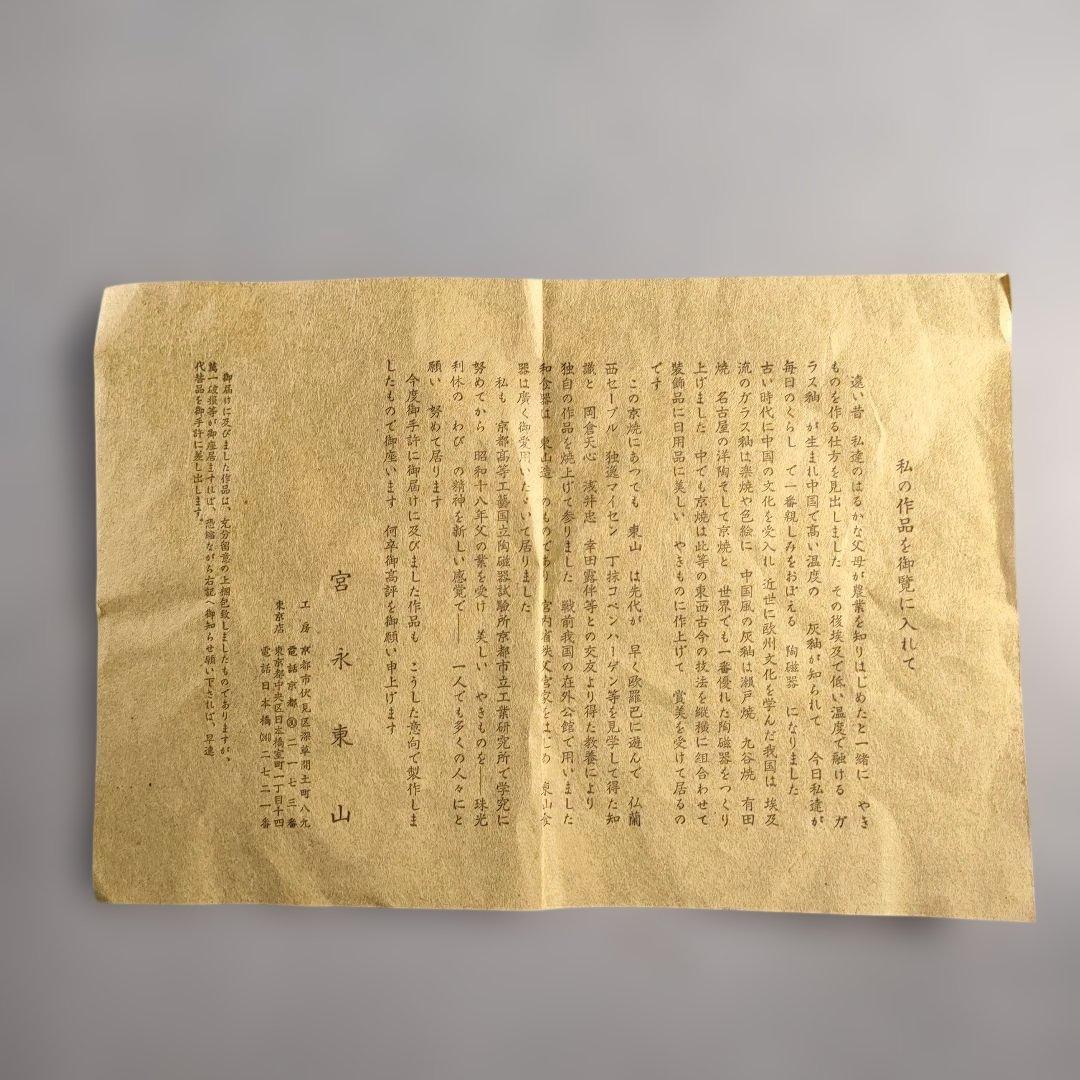 私の作品を御覽に入れて
遠い昔 私達のはるかな父母が農業を知りはじめたと一緒に やき
ものを作る仕方を見出しました その後埃及で低い温度で融ける ガ
ラス釉 が生まれ中国で高い温度の 灰釉が知られて 今日私達が
毎日のくらし で一番親しみをおぼえる 陶磁器 になりました
古い時代に中国の文化を受入れ 近世に欧州文化を学んだ我国は 埃及
流のガラス釉は楽焼や色絵に 中国風の灰釉は瀬戸焼 九谷焼 有田
焼 名古屋の洋陶そして京焼と 世界でも一番優れた陶磁器をつくり
上げました 中でも京焼は此等の東西古今の技法を縦横に組合わせて
装飾品に日用品に美しい やきものに作上げて 賞美を受けて居るの
です
この京焼にあつても 東山 は先代が 早く欧羅巴に遊んで 仏蘭
西セーブル 独逸マイセン 丁抹コペンハーゲン等を見学して得た知
識と 岡倉天心 浅井忠 幸田露伴等との交友より得た教養により
独自の作品を焼上げて参りました 戦前我国の在外公館で用いました
和食器は 東山造 のものであり 宮内省秩父宮家をはじめ 東山食
器は廣く御愛用いたゞいて居りました
私も 京都高等工藝国立陶磁器試験所京都市立工業研究所で学究に
努めてから 昭和十八年父の業を受け 美しい やきものを──珠光
利休の わび の精神を新しい感覚で── 一人でも多くの人々にと
願い 努めて居ります
今度御手許に御届けに及びました作品も こうした意向で製作しま
したもので御座います 何卒御高評を御願い申上げます
宮永東山
工房 京都市伏見区深草開土町八九
電話京都⑭二一七三番
東京店 東京都中央区日本橋室町一丁目十四
電話日本橋㉔二七二一番
御届けに及びました作品は、充分留意の上梱包致しましたものでありますが、
萬一破損等が御座居ますれば、恐縮ながら右記へ御知らせ願い下されば、早速
代替品を御手許に差し出します。